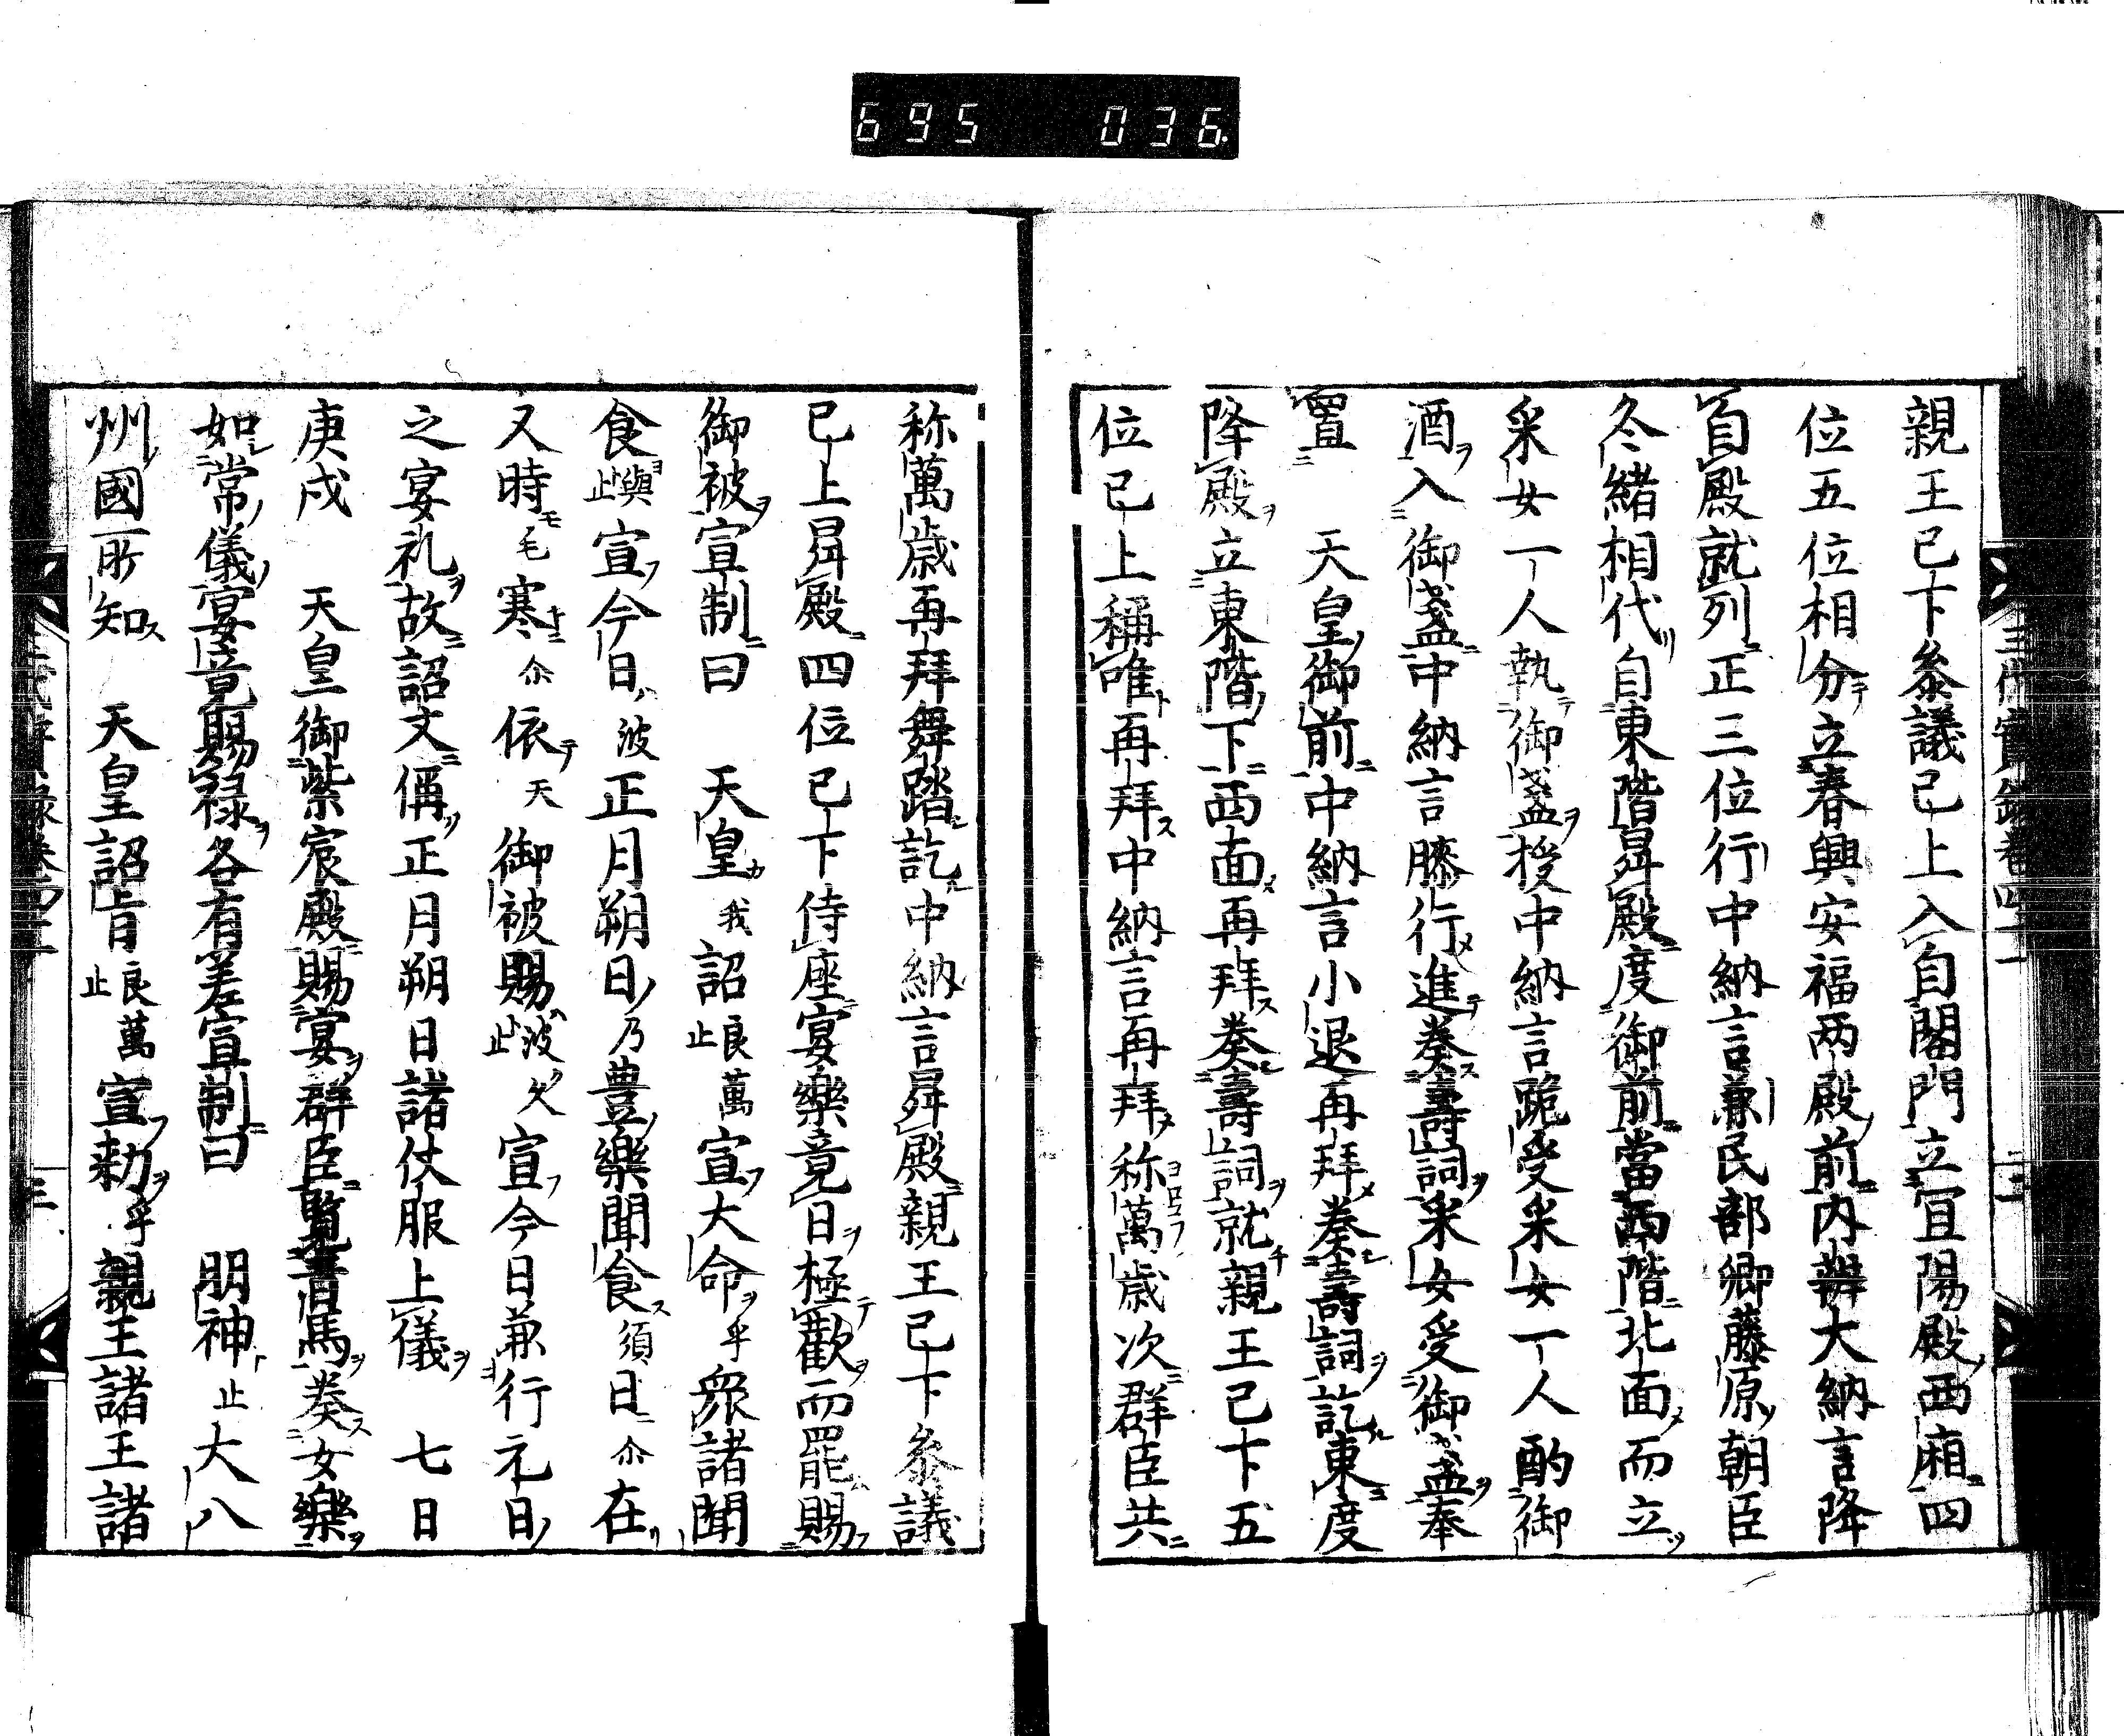 695 036.
親王已下參議已上入自閤門立宜陽殿西廂四
位五位相分立春興安福两殿前内辨大納言降
自殿就列正三位行中納言兼民部卿藤原朝臣
冬緒相代自東階昇殿度御前當西階北面而立
采女一人執御盞授中納言跪受采女一人酌御
酒入御盞中納言膝行進奏壽詞采女受御盞奉
置　天皇御前中納言小退再拜奏壽詞訖東度
降殿立東階下西面再拜奏壽詞就親王已下五
位已上稱唯再拜中納言再拜称萬歳次群臣共
称萬歳再拜舞踏訖中納言昇殿親王已下參議
已上昇殿四位已下侍座宴樂竟日極歡而罷賜
御被宣制曰　天皇我詔良萬止宣大命乎衆諸聞
食與止宣今日波正月朔日乃豊樂聞食須日尒在
又時毛寒尒依天御被賜波久止宣今日兼行元日
之宴礼故詔文偁正月朔日諸仗服上儀　七日
庚戌　天皇御紫宸殿賜宴群臣覧青馬奏女樂
如常儀宴竟賜禄各有差宣制曰　明神止大八
州國所知　天皇詔旨良萬止宣勅乎親王諸王諸